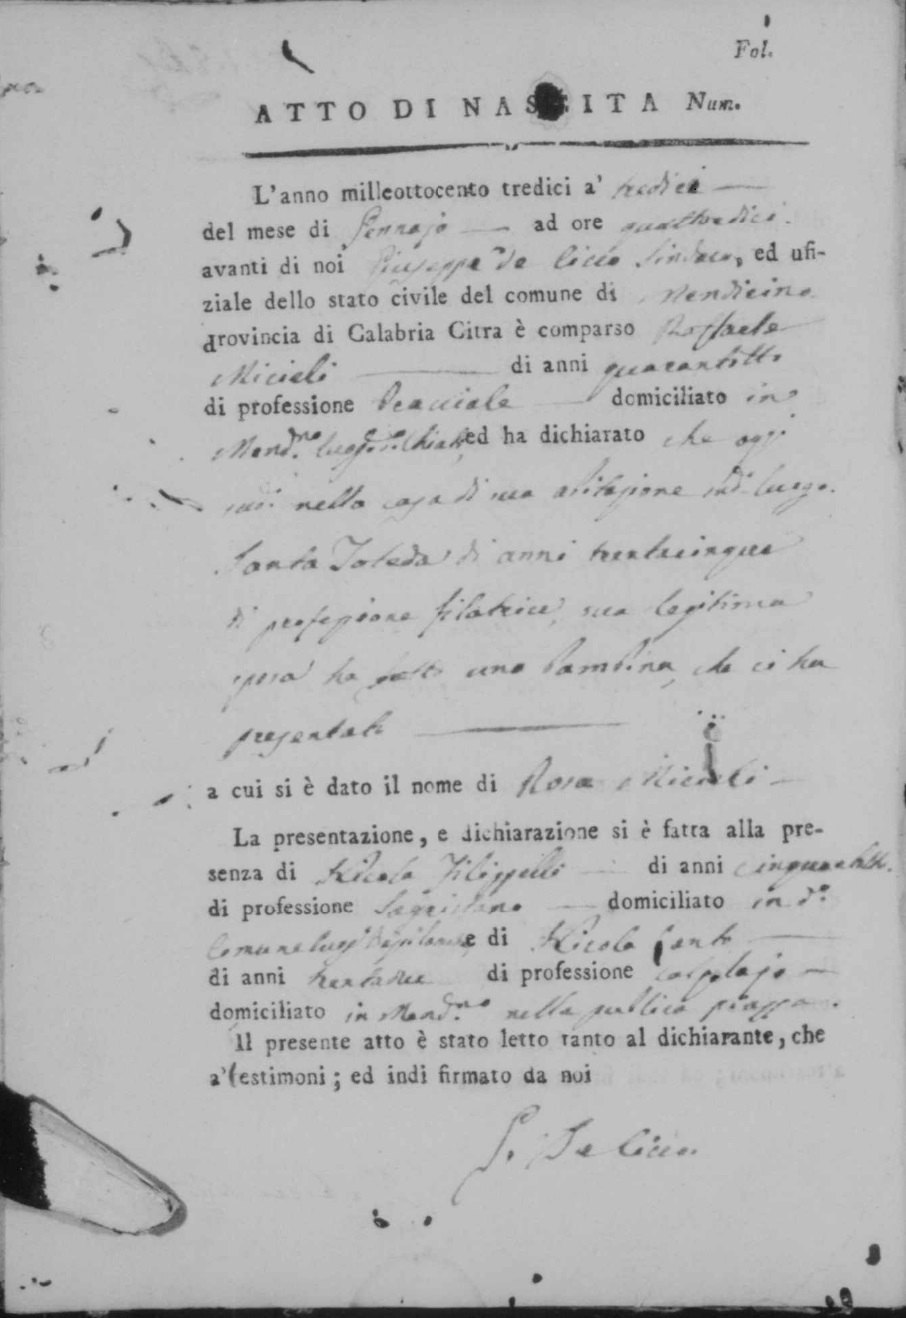 Fol.
ATTO DI NASCITA Num.
L'anno milleottocento tredici a' tredici
del mese di Gennajo ad ore quattordici
avanti di noi Giuseppe de Cicco Sindaco, ed ufi-
ziale dello stato civile del comune di Mendicino
provincia di Calabria Citra è comparso Raffaele
Micieli di anni quarantotto
di professione Bracciale domiciliato in
Mend.no luogo ed ha dichiarato che oggi
nella casa di sua abitazione luogo
Santa Toteda di anni trentacinque
di professione filatrice, sua legitima
sposa ha fatto una bambina, che ci ha
presentato
a cui si è dato il nome di Rosa Micieli
La presentazione, e dichiarazione si è fatta alla pre-
senza di Nicola Filippelli di anni
di professione Sagristano domiciliato in d.o
Comune e di Nicola
di anni trentadue di professione
domiciliato in Mend.no nella publica piazza.
Il presente atto è stato letto tanto al dichiarante, che
a' testimoni; ed indi firmato da noi
G. De Cicco